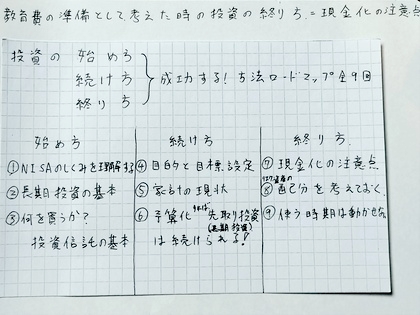 教育費の準備として考えた時の投資の終り方=現金化の注意点
投資の 始め方
続け方
終り方
成功する!方法ロードマップ全9回
始め方
①NISAのしくみを理解する
②長期投資の基本
③何を買うか?
投資信託の基本
続け方
④目的と目標設定
⑤家計の現状
⑥予算化 先取り投資
(長期投資)
は続けられる!
終り方
⑦現金化の注意点
⑧自己分を考えておく
⑨使う時期は動かせない